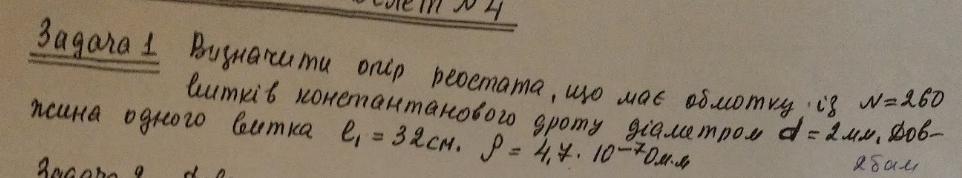 N 4
Задача 1 Визначити опір реостата, що має обмотку із N=260
витків константанового дроту діаметром d=2мм. Дов-
жина одного витка l₁=32см. ρ=4,7·10⁻⁷Ом·м
2 бали
Задача 2